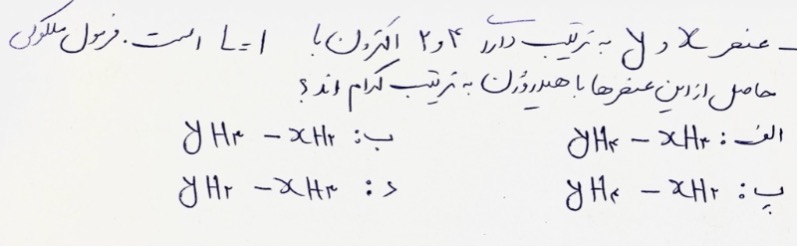 - عنصر x و y به ترتیب دارد ۴ و ۲ الکترون با L=1 است. فرمول مولکولی
حاصل از این عنصرها با هیدروژن به ترتیب کدام اند؟
الف: yH۴ - xH۲ ب: yH۳ - xH۲
پ: yH۴ - xH۲ د: yH۲ - xH۳